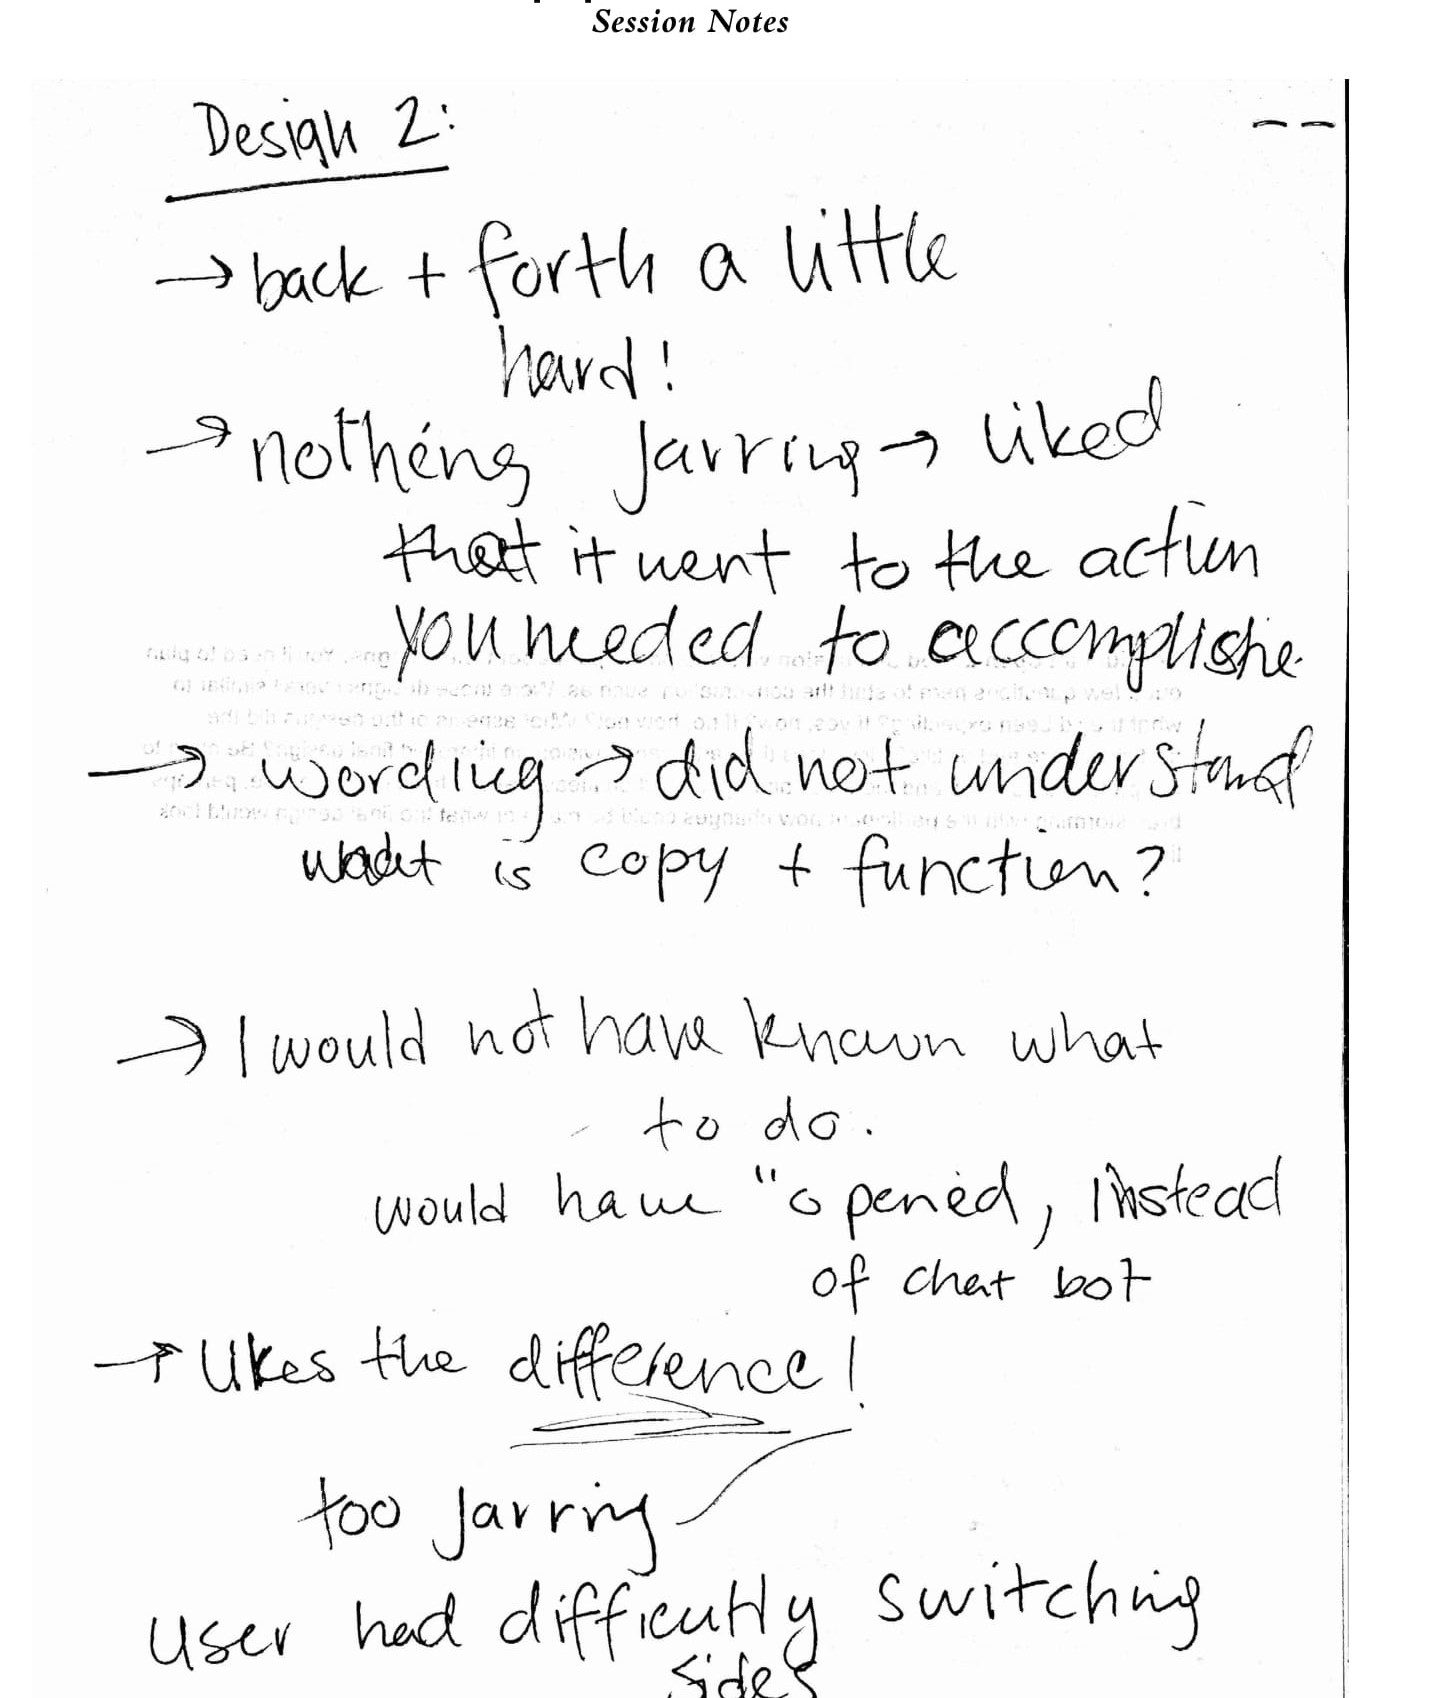 Session Notes
Design 2:
→ back + forth a little
hard!
→ nothing jarring → liked
that it went to the action
you needed to accomplishe.
→ wording → did not understand
what is copy + function?
→ I would not have known what
to do.
would have "opened, instead
of chat bot
→ likes the difference!
too jarring
User had difficultly switching
sides